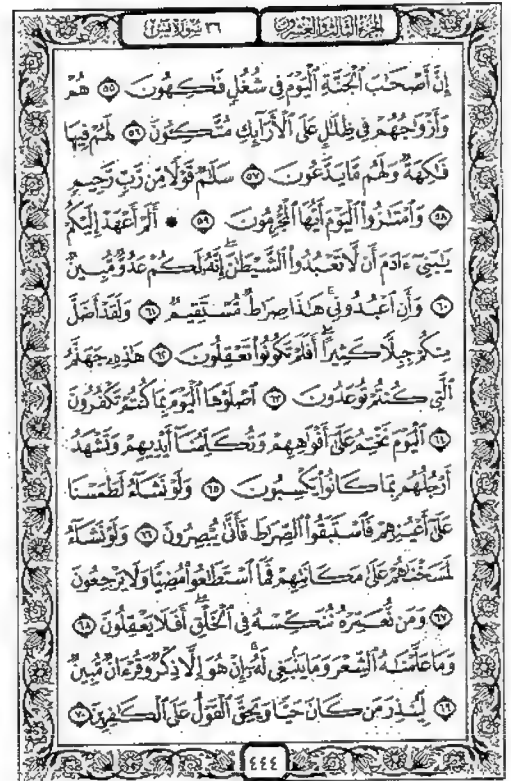 الجزء الثالث والعشرون ٣٦ سورة يس
إِنَّ أَصْحَٰبَ ٱلْجَنَّةِ ٱلْيَوْمَ فِى شُغُلٍ فَٰكِهُونَ ٥٥ هُمْ
وَأَزْوَٰجُهُمْ فِى ظِلَٰلٍ عَلَى ٱلْأَرَآئِكِ مُتَّكِـُٔونَ ٥٦ لَهُمْ فِيهَا
فَٰكِهَةٌ وَلَهُم مَّا يَدَّعُونَ ٥٧ سَلَٰمٌ قَوْلًا مِّن رَّبٍّ رَّحِيمٍ
٥٨ وَٱمْتَٰزُوا۟ ٱلْيَوْمَ أَيُّهَا ٱلْمُجْرِمُونَ ٥٩ * أَلَمْ أَعْهَدْ إِلَيْكُمْ
يَٰبَنِىٓ ءَادَمَ أَن لَّا تَعْبُدُوا۟ ٱلشَّيْطَٰنَ ۖ إِنَّهُۥ لَكُمْ عَدُوٌّ مُّبِينٌ
٦٠ وَأَنِ ٱعْبُدُونِى ۚ هَٰذَا صِرَٰطٌ مُّسْتَقِيمٌ ٦١ وَلَقَدْ أَضَلَّ
مِنكُمْ جِبِلًّا كَثِيرًا ۖ أَفَلَمْ تَكُونُوا۟ تَعْقِلُونَ ٦٢ هَٰذِهِۦ جَهَنَّمُ
ٱلَّتِى كُنتُمْ تُوعَدُونَ ٦٣ ٱصْلَوْهَا ٱلْيَوْمَ بِمَا كُنتُمْ تَكْفُرُونَ
٦٤ ٱلْيَوْمَ نَخْتِمُ عَلَىٰٓ أَفْوَٰهِهِمْ وَتُكَلِّمُنَآ أَيْدِيهِمْ وَتَشْهَدُ
أَرْجُلُهُم بِمَا كَانُوا۟ يَكْسِبُونَ ٦٥ وَلَوْ نَشَآءُ لَطَمَسْنَا
عَلَىٰٓ أَعْيُنِهِمْ فَٱسْتَبَقُوا۟ ٱلصِّرَٰطَ فَأَنَّىٰ يُبْصِرُونَ ٦٦ وَلَوْ نَشَآءُ
لَمَسَخْنَٰهُمْ عَلَىٰ مَكَانَتِهِمْ فَمَا ٱسْتَطَٰعُوا۟ مُضِيًّا وَلَا يَرْجِعُونَ
٦٧ وَمَن نُّعَمِّرْهُ نُنَكِّسْهُ فِى ٱلْخَلْقِ ۖ أَفَلَا يَعْقِلُونَ ٦٨
وَمَا عَلَّمْنَٰهُ ٱلشِّعْرَ وَمَا يَنۢبَغِى لَهُۥٓ ۚ إِنْ هُوَ إِلَّا ذِكْرٌ وَقُرْءَانٌ مُّبِينٌ
٦٩ لِّيُنذِرَ مَن كَانَ حَيًّا وَيَحِقَّ ٱلْقَوْلُ عَلَى ٱلْكَٰفِرِينَ ٧٠
٤٤٤